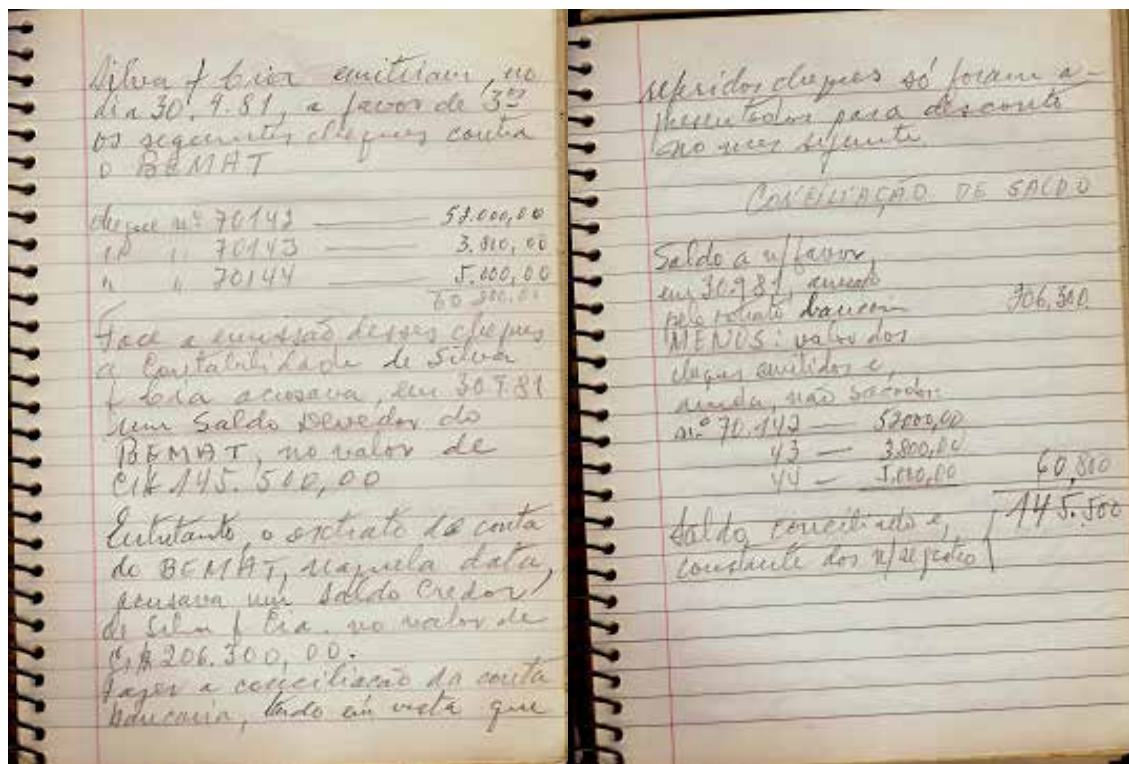 Silva & Cia emitiram, no
dia 30.9.81, a favor de 3os
os seguintes cheques contra
o BEMAT
cheque nº 70142 — 52.000,00
" " 70143 — 3.800,00
" " 70144 — 5.000,00
60.800,00
Face a emissão desses cheques
a Contabilidade de Silva
& Cia acusava, em 30.9.81
um Saldo Devedor do
BEMAT, no valor de
CR$ 145.500,00
Entretanto, o extrato da conta
do BEMAT, naquela data,
acusava um Saldo Credor,
de Silva & Cia. no valor de
CR$ 206.300,00.
Fazer a conciliação da conta
bancaria, tendo em vista que
referidos cheques só foram a-
presentados para desconto
no mes seguinte.
CONCILIAÇÃO DE SALDO
Saldo a n/favor,
em 30.9.81, acusado
pelo extrato bancario 206,300
MENOS: valor dos
cheques emitidos e,
ainda, não sacados:
nº 70.142 — 52000,00
43 — 3.800,00
44 — 5.000,00 60,800
Saldo, conciliado e, 145.500
constante dos n/registro